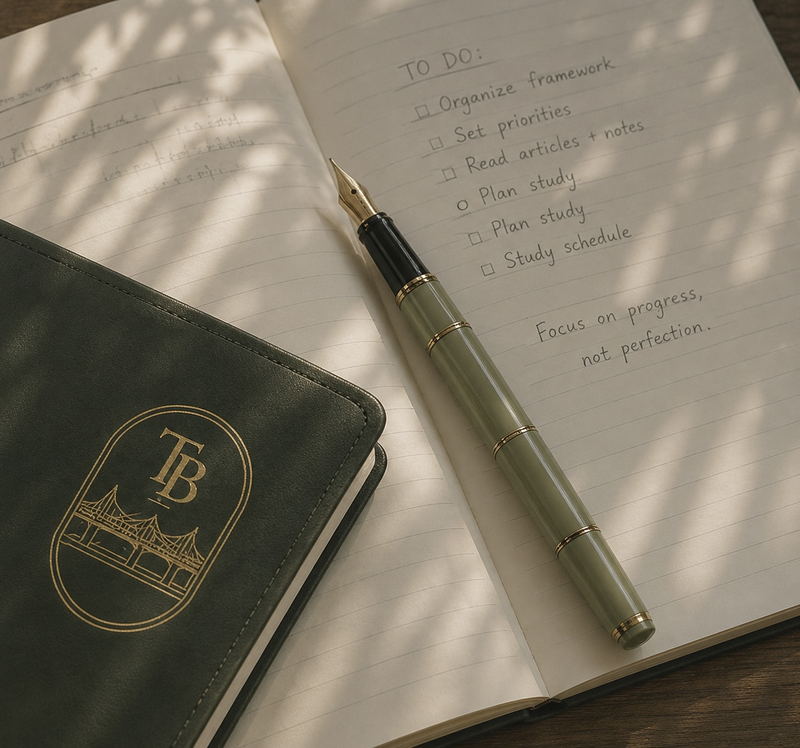 TO DO:
Organize framework
Set priorities
Read articles + notes
Plan study
Plan study
Study schedule
Focus on progress,
not perfection.
TB